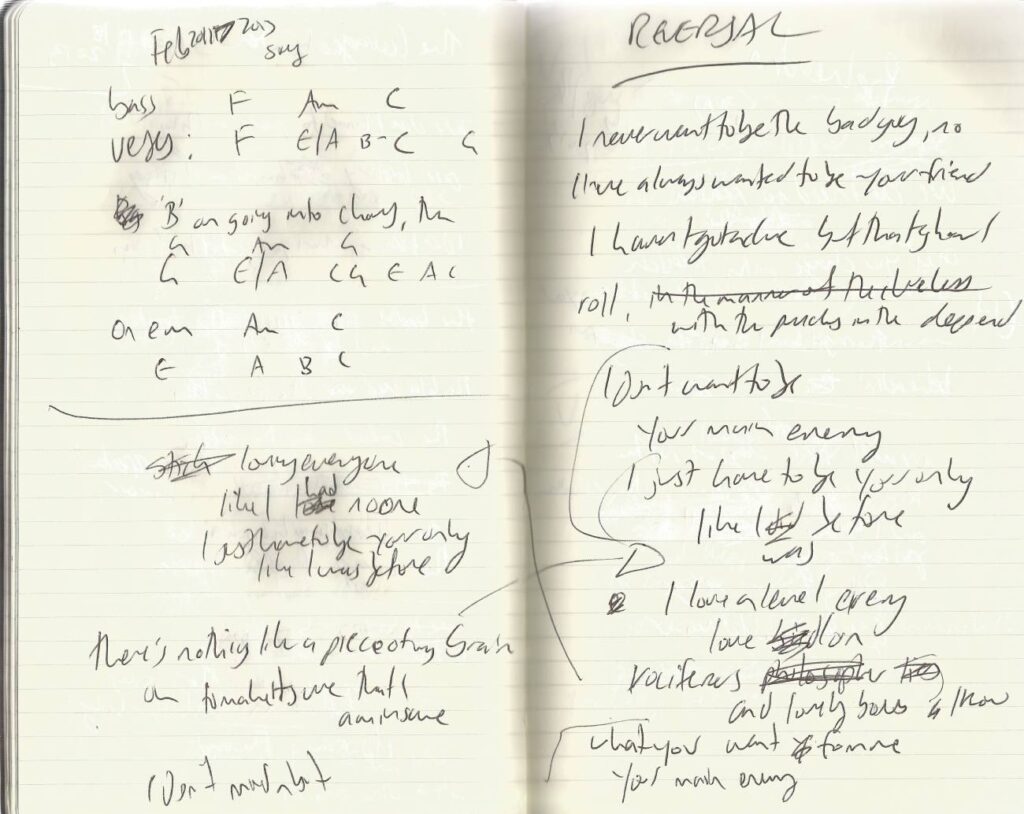 Feb 2013
song
bass F Am C
verse: F E/A B-C G
'B' on going into chorus, then
G Am G
G E/A C G E A C
on em Am C
E A B C
love everyone
like I had no one
I just have to be your only
like I was before
there's nothing like a piece of my brain
on to make it sure that I
am insane
I don't mind but
REVERSAL
I never want to be the bad guy, no
I have always wanted to be your friend
I haven't got a clue but that's how I
roll, in the manner of the clueless
with the punches in the deep end
I Don't want to be
your main enemy
I just have to be your only
like I before
was
I love a level enemy
love
vociferous
and lonely I know
what you want from me
your main enemy